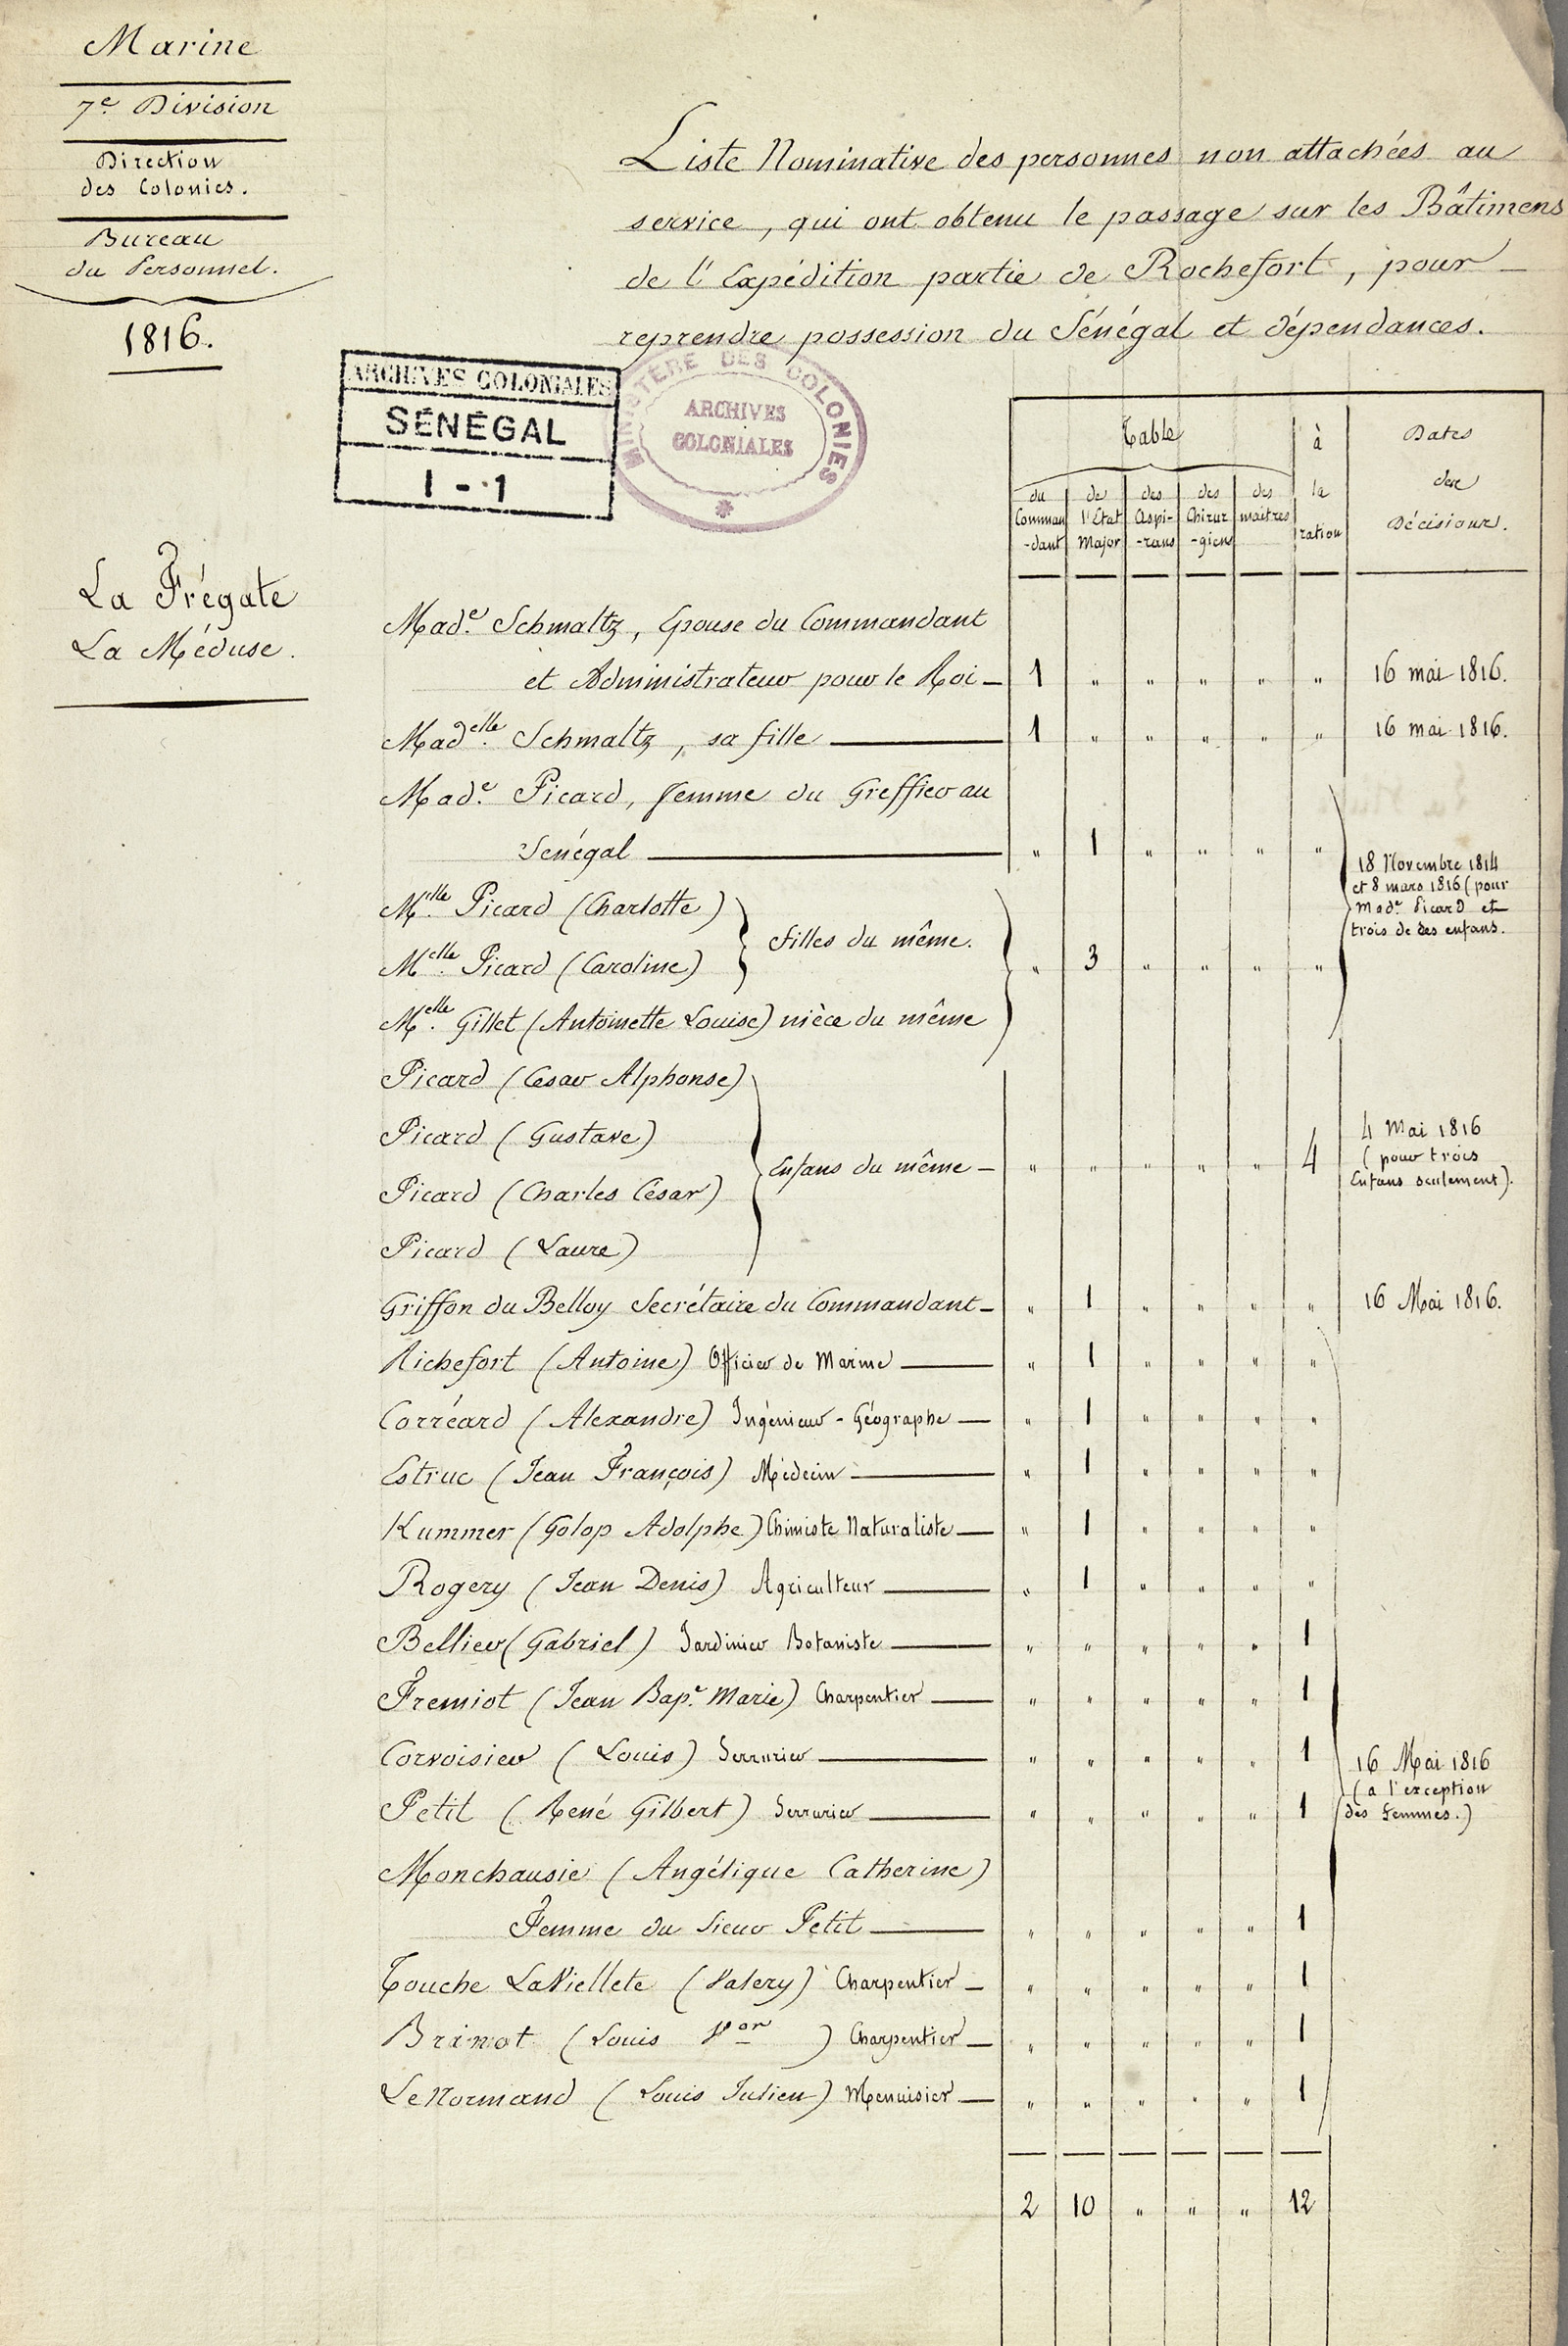 Marine
7e. Division
Direction
des Colonies.
Bureau
du Personnel.
1816.
Liste Nominative des personnes non attachées au
service, qui ont obtenu le passage sur les Bâtimens
de l'Expédition partie de Rochefort, pour
reprendre possession du Sénégal et dépendances.
ARCHIVES COLONIALES
SÉNÉGAL
1 - 1
MINISTÈRE DES COLONIES
ARCHIVES
COLONIALES
La Frégate
La Méduse.
Table
du Comman-dant
de l'État Major
des Aspi-rans
des Chirur-giens
des maitres
à la ration
Dates des Décisions.
Made. Schmaltz, Epouse du Commandant
et Administrateur pour le Roi — 1 " " " " " 16 mai 1816.
Madelle. Schmaltz, sa fille — 1 " " " " " 16 mai 1816.
Made. Picard, femme du Greffier au
Sénégal — " 1 " " " "
18 Novembre 1814
et 8 mars 1816 (pour
Made. Picard et
trois de ses enfans.
Melle. Picard (Charlotte)
Melle. Picard (Caroline)
filles du même.
" 3 " " " "
Melle. Gillet (Antoinette Louise) nièce du même
Picard (Cesar Alphonse)
Picard (Gustave)
Picard (Charles Cesar)
Picard (Laure)
Enfans du même — " " " " " 4
4 Mai 1816
(pour trois
Enfans seulement).
Griffon du Belloy Secrétaire du Commandant — " 1 " " " " 16 Mai 1816.
Richefort (Antoine) Officier de Marine — " 1 " " " "
Corréard (Alexandre) Ingénieur - Géographe — " 1 " " " "
Estruc (Jean François) Médecin — " 1 " " " "
Kummer (Golop Adolphe) Chimiste Naturaliste — " 1 " " " "
Rogery (Jean Denis) Agriculteur — " 1 " " " "
Bellier (Gabriel) Jardinier Botaniste — " " " " " 1
Fremiot (Jean Bape. Marie) Charpentier — " " " " " 1
Corvoisier (Louis) Serrurier — " " " " " 1
Petit (René Gilbert) Serrurier — " " " " " 1
16 Mai 1816
(a l'exception
des femmes.)
Monchausie (Angélique Catherine)
Femme du Sieur Petit — " " " " " 1
Touche LaViellete (Valery) Charpentier — " " " " " 1
Brinot (Louis Vor) Charpentier — " " " " " 1
LeNormand (Louis Julien) Menuisier — " " " " " 1
2 10 " " " 12